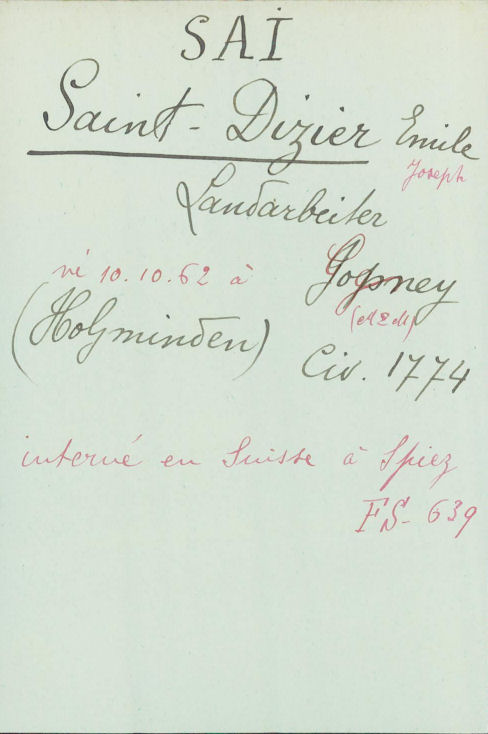 SAI
Saint-Dizier Emile
Joseph
Landarbeiter
né 10.10.62 à
(Holzminden)
(M&M)
Civ. 1774
interné en Suisse à Spiez
FS- 639